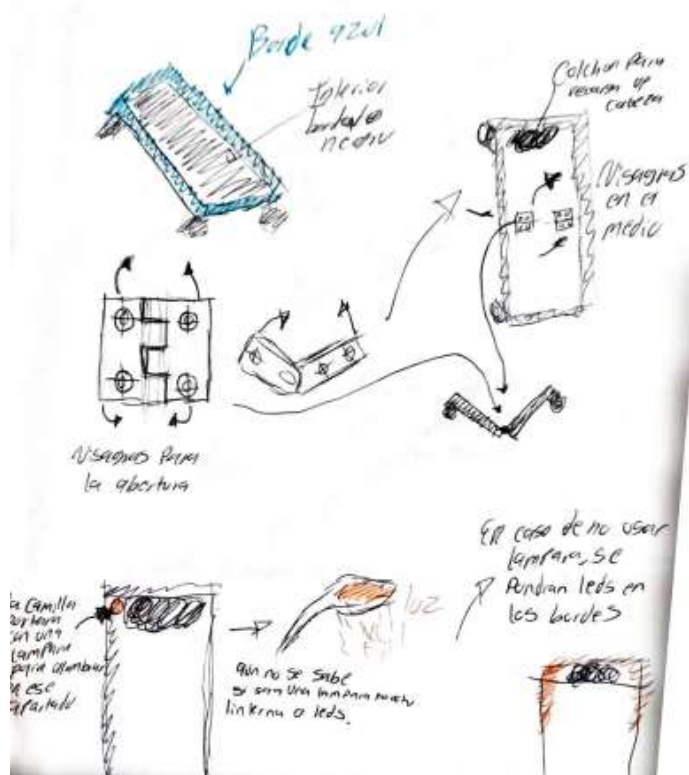 Borde azul
Interior
bordado
negro
Colchon para
recargar
cabeza
Visagras
en el
medio
Visagras para
la abertura
En caso de no usar
lampara, se
Pondran leds en
los bordes
la camilla
con una
lampara
para alumbrar
en ese
apartado
luz
aun no se sabe
si sera una lampara
linterna o leds.